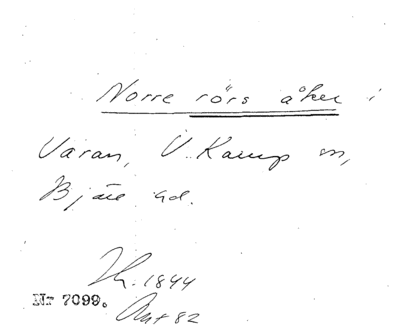 Norre rörs åker i
Varan, V. Karup sn,
Bjäre hd.
Th. 1844
Nr 7099.
Ant 82